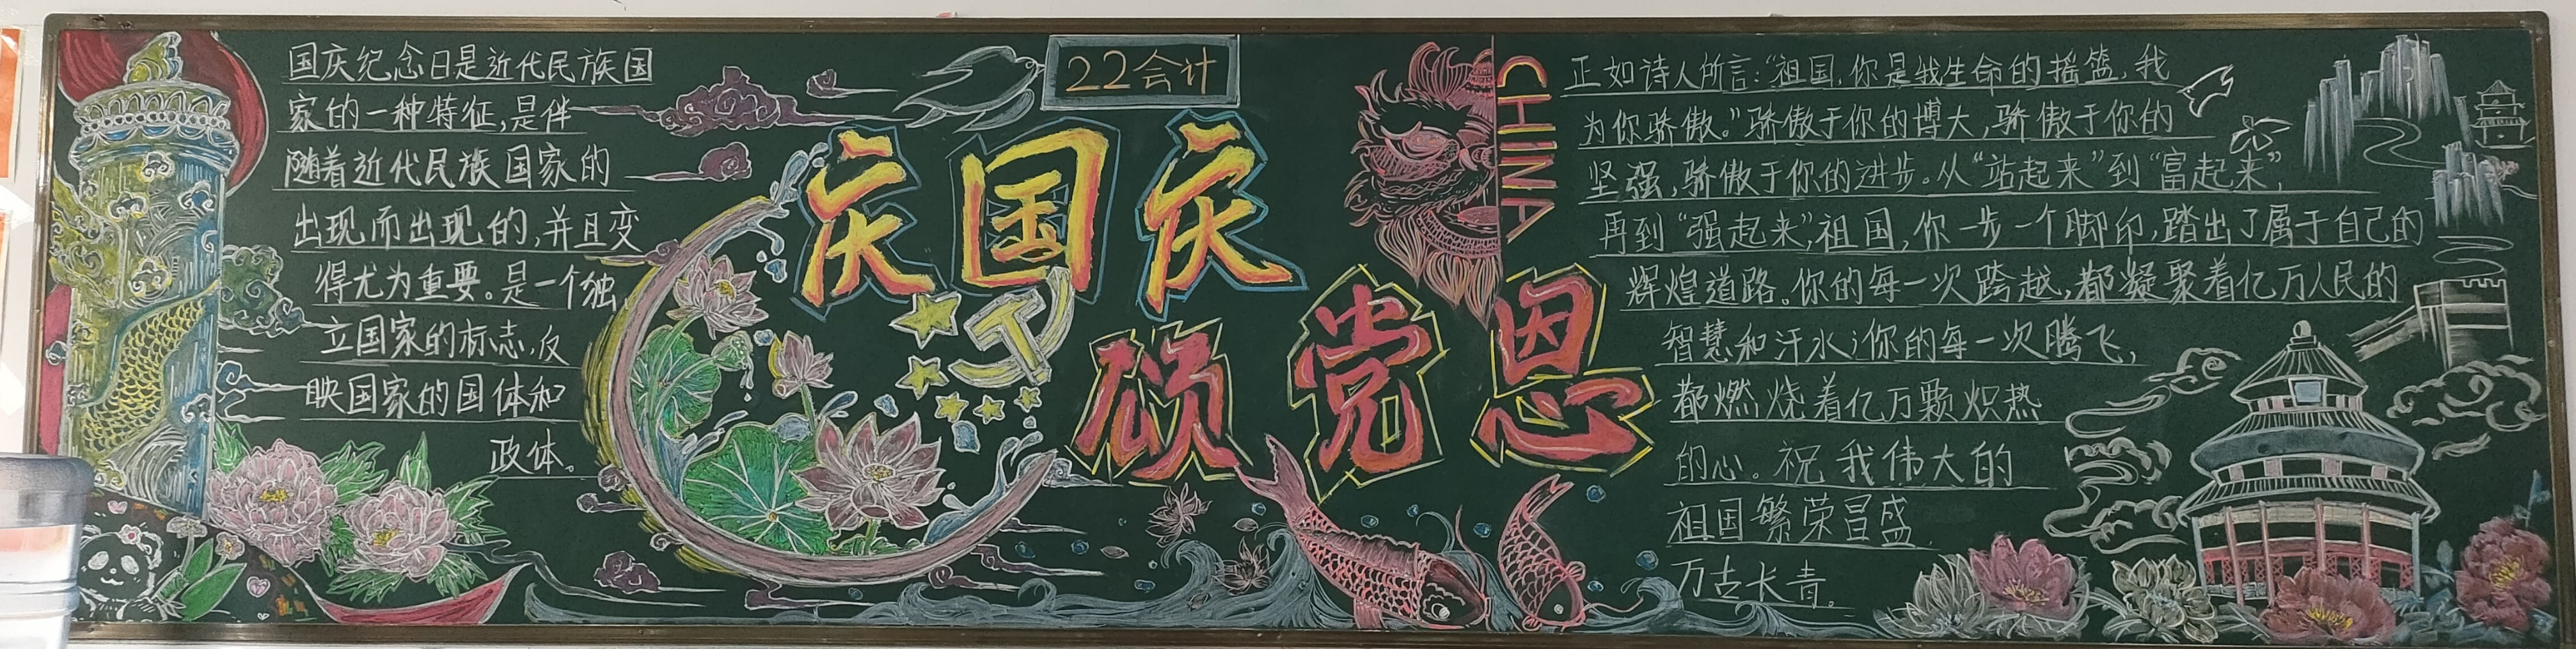 国庆纪念日是近代民族国
家的一种特征,是伴
随着近代民族国家的
出现而出现的,并且变
得尤为重要。是一个独
立国家的标志,反
映国家的国体和
政体。
22会计
庆国庆
颂党恩
CHINA
正如诗人所言:“祖国,你是我生命的摇篮,我
为你骄傲。”骄傲于你的博大,骄傲于你的
坚强,骄傲于你的进步。从“站起来”到“富起来”,
再到“强起来”,祖国,你一步一个脚印,踏出了属于自己的
辉煌道路。你的每一次跨越,都凝聚着亿万人民的
智慧和汗水;你的每一次腾飞,
都燃烧着亿万颗炽热
的心。祝我伟大的
祖国繁荣昌盛
万古长青。